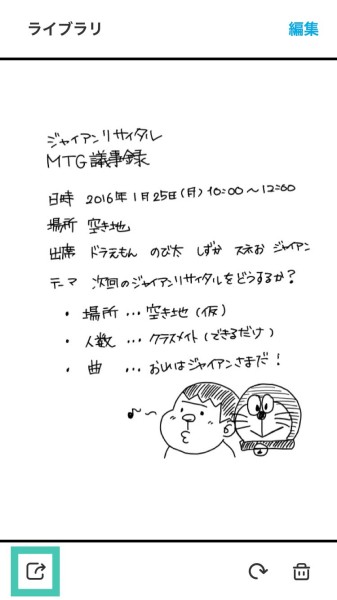 ライブラリ 編集
ジャイアンリサイタル
MTG議事録
日時 2016年1月25日(月)10:00〜12:00
場所 空き地
出席 ドラえもん のび太 しずか スネお ジャイアン
テーマ 次回のジャイアンリサイタルをどうするか?
・ 場所 … 空き地(仮)
・ 人数 … クラスメイト(できるだけ)
・ 曲 … おれはジャイアンさまだ!